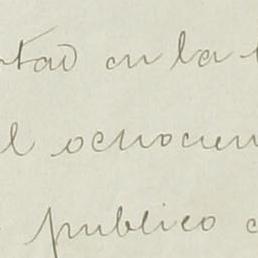 tad en la
l ochocien
publico